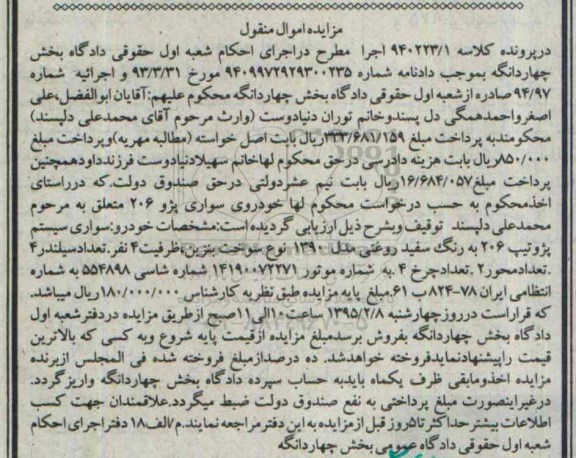 مزایده اموال منقول
درپرونده کلاسه ۹۴۰۲۲۳/۱ اجرا مطرح دراجرای احکام شعبه اول حقوقی دادگاه بخش
چهاردانگه بموجب دادنامه شماره ۹۴۰۹۹۷۲۹۲۹۳۰۰۲۳۵ مورخ ۹۳/۳/۳۱ و اجرائیه شماره
۹۴/۹۷ صادره ازشعبه اول حقوقی دادگاه بخش چهاردانگه محکوم علیهم:آقایان ابوالفضل،علی
اصغرواحمدهمگی دل پسندوخانم توران دنیادوست (وارث مرحوم آقای محمدعلی دلپسند)
محکومندبه پرداخت مبلغ ۳۳۳/۶۸۱/۱۵۹ریال بابت اصل خواسته (مطالبه مهریه)وپرداخت مبلغ
۸۵۰/۰۰۰ریال بابت هزینه دادرسی درحق محکوم لهاخانم سهیلادنیادوست فرزندداودهمچنین
پرداخت مبلغ۱۶/۶۸۴/۰۵۷ریال بابت نیم عشردولتی درحق صندوق دولت.که درراستای
اخذمحکوم به حسب درخواست محکوم لها خودروی سواری پژو ۲۰۶ متعلق به مرحوم
محمدعلی دلپسند توقیف وبشرح ذیل ارزیابی گردیده است:مشخصات خودرو:سواری سیستم
پژوتیپ ۲۰۶ به رنگ سفید روغنی مدل ۱۳۹۰ نوع سوخت بنزین،ظرفیت۴ نفر.تعدادسیلندر۴
.تعدادمحور۲ .تعدادچرخ ۴ .به شماره موتور ۱۴۱۹۰۰۷۲۲۷۱ شماره شاسی ۵۵۴۸۹۸ به شماره
انتظامی ایران ۷۸-۸۲۴ب ۶۱.مبلغ پایه مزایده طبق نظریه کارشناس ۱۸۰/۰۰۰/۰۰۰ریال میباشد.
که قراراست درروزچهارشنبه ۱۳۹۵/۲/۸ ساعت۱۰الی۱۱صبح ازطریق مزایده دردفترشعبه اول
دادگاه بخش چهاردانگه بفروش برسدمبلغ مزایده ازقیمت پایه شروع وبه کسی که بالاترین
قیمت راپیشنهادنمایدفروخته خواهدشد. ده درصدازمبلغ فروخته شده فی المجلس ازبرنده
مزایده اخذومابقی ظرف یکماه بایدبه حساب سپرده دادگاه بخش چهاردانگه واریزگردد.
درغیراینصورت مبلغ پرداختی به نفع صندوق دولت ضبط میگردد.علاقمندان جهت کسب
اطلاعات بیشتر حداکثر تا۵روز قبل ازمزایده به این دفترمراجعه نمایند.م/الف۱۸ دفتراجرای احکام
شعبه اول حقوقی دادگاه عمومی بخش چهاردانگه